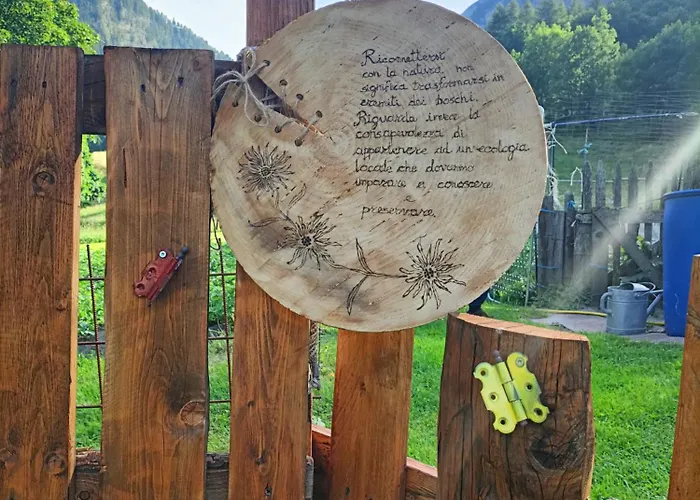 Riconnettersi
con la natura non
significa trasformarsi in
eremiti dei boschi.
Riguarda invece la
consapevolezza di
appartenere ad un'ecologia
locale che dovremmo
imparare a conoscere
e
preservare.